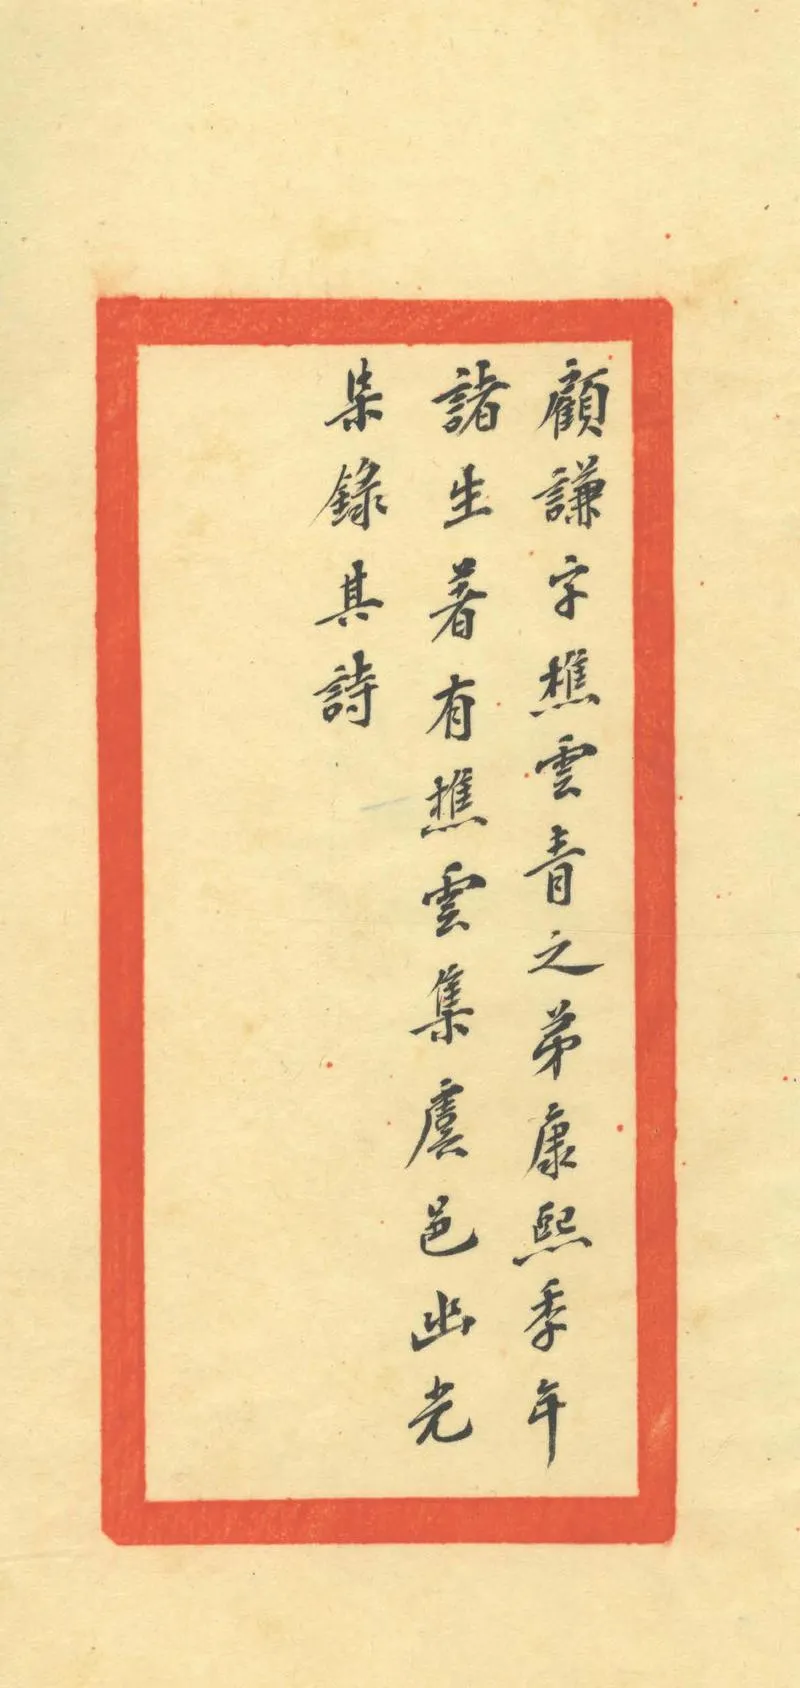 顧謙字樵雲青之弟康熙季年
諸生著有樵雲集虞邑幽光
集錄其詩